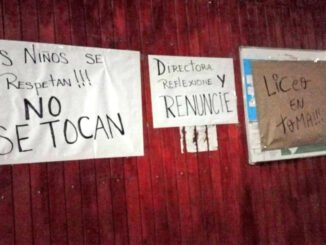 S NIÑOS SE
RESPETAN!!!
NO
SE TOCAN
DIRECTORA
REFLEXIONE Y
RENUNCIE
LICEO
EN
TOMA!!!